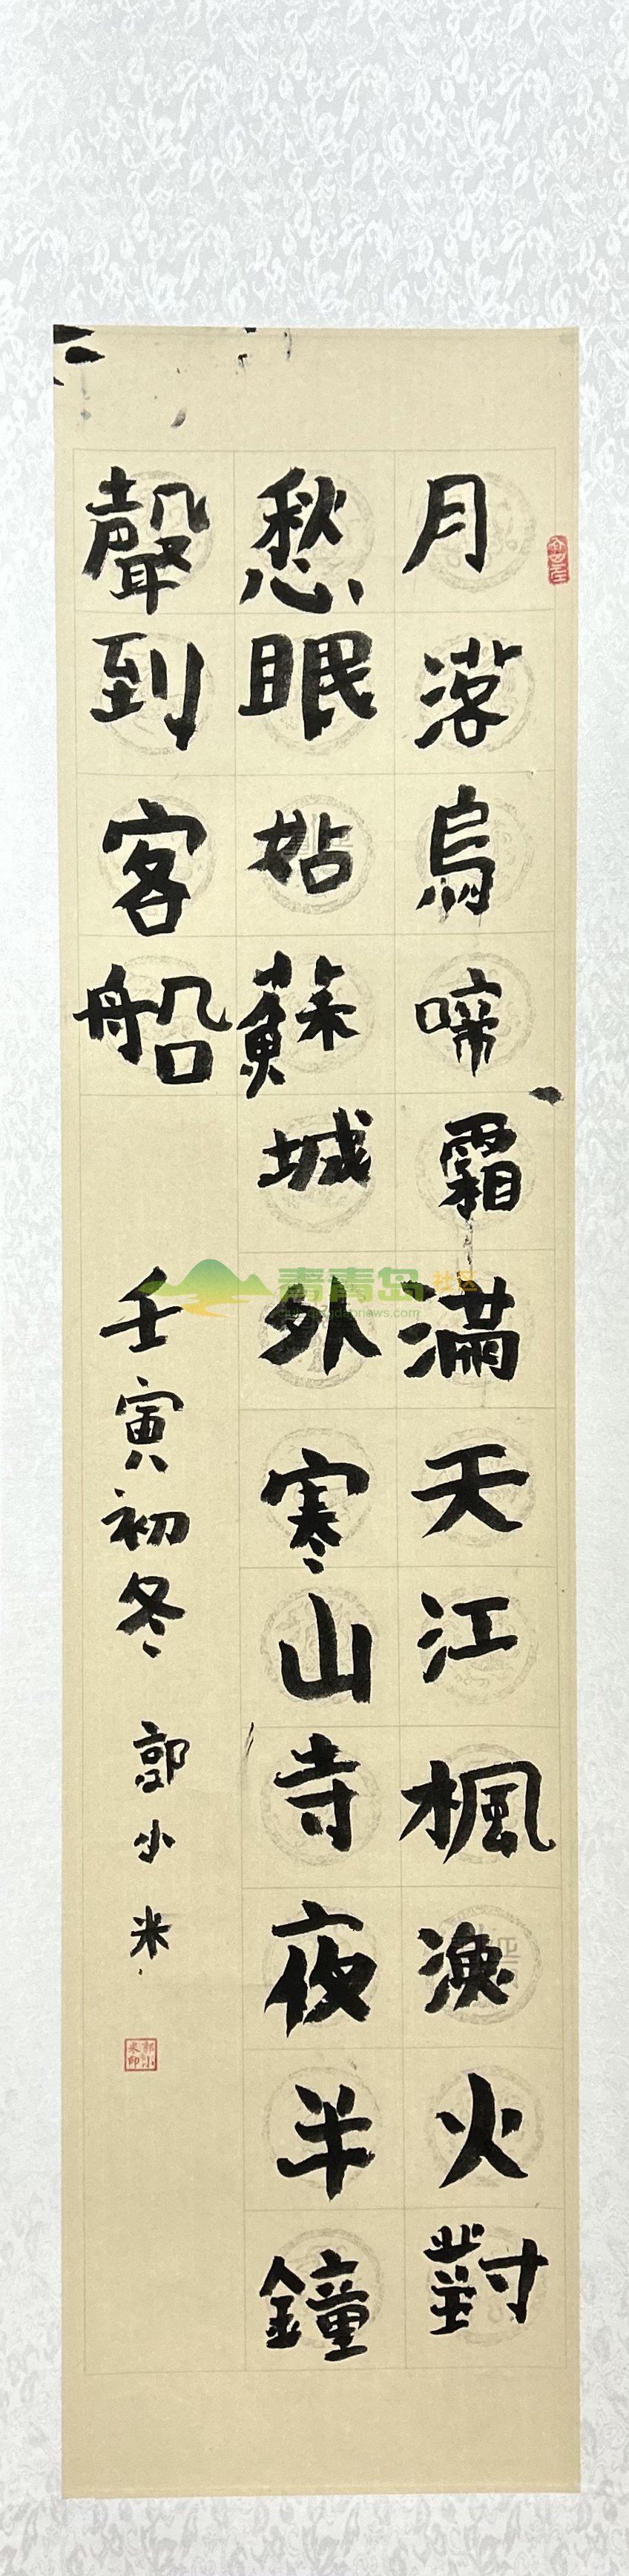 月落烏啼霜滿天江楓漁火對
愁眠姑蘇城外寒山寺夜半鐘
聲到客船
壬寅初冬 郭小米
郭小米印
青青岛社区